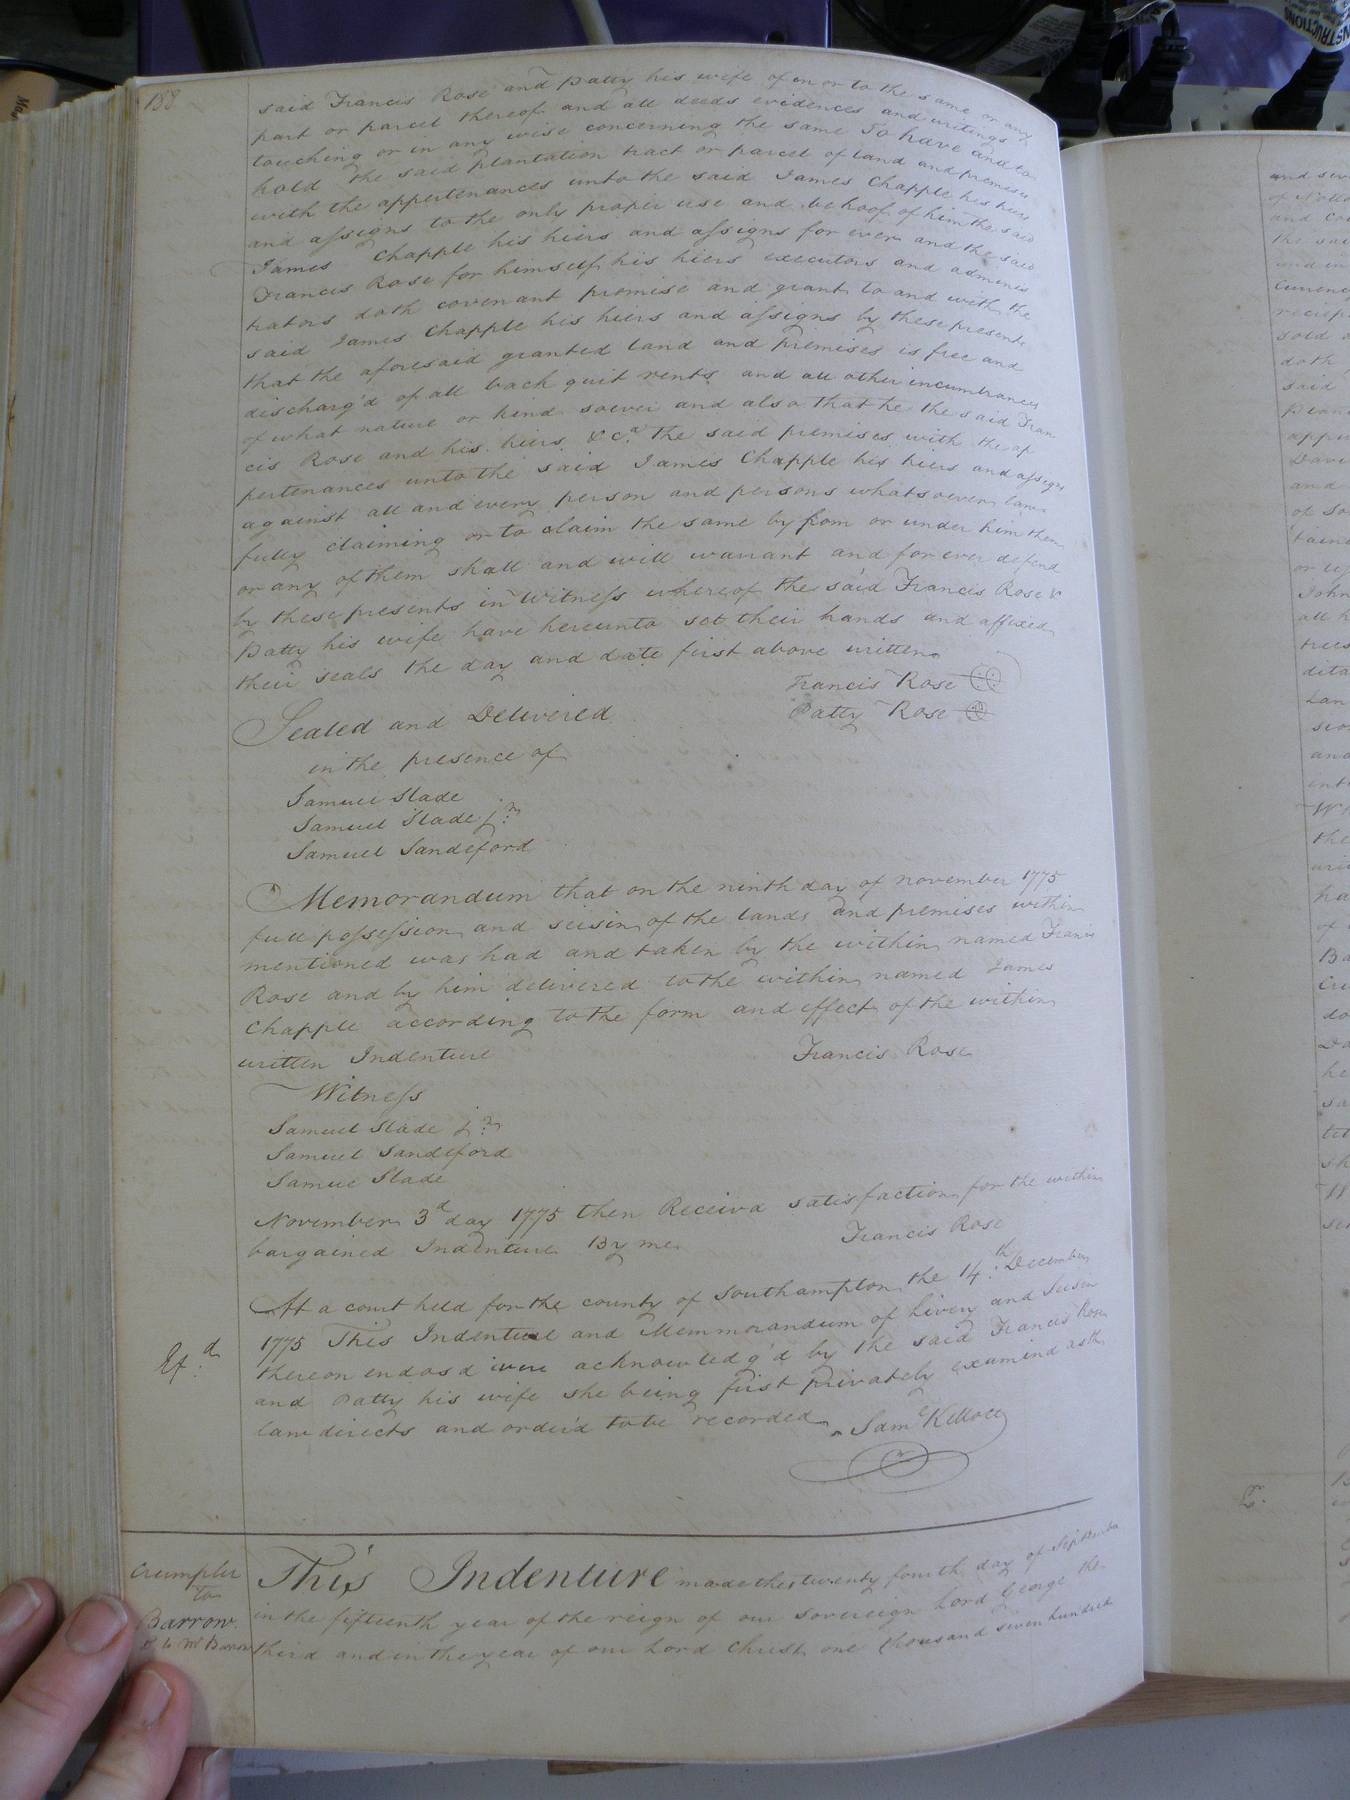 188
said Francis Rose and Patty his wife of in or to the same or any
part or parcel thereof and all deeds evidences and writings
touching or in any wise concerning the same To have and to
hold the said plantation tract or parcel of land and premises
with the appertenances unto the said James Chapple his hiers
and assigns to the only proper use and behoof of him the said
James Chapple his hiers and assigns for ever and the said
Francis Rose for himself his hiers executors and adminis
trators doth covenant promise and grant to and with the
said James Chapple his hiers and assigns by these presents
that the aforesaid granted land and premises is free and
discharg'd of all back quit rents and all other incumbrances
of what nature or kind soever and also that he the said Fran
cis Rose and his hiers &c.a the said premises with the ap
pertenances unto the said James Chapple his hiers and assigns
against all and every person and persons whatsoever law
fully claiming or to claim the same by from or under him them
or any of them shall and will warrant and for ever defend
by these presents in Witness whereof the said Francis Rose &
Patty his wife have hereunto set their hands and affixed
their seals the day and date first above written
Francis Rose
Patty Rose
Sealed and Delivered
in the presence of
Samuel Slade
Samuel Slade jr
Samuel Sandeford
Memorandum that on the ninth day of november 1775
full possession and seisin of the lands and premises within
mentioned was had and taken by the within named Francis
Rose and by him delivered to the within named James
Chapple according to the form and effect of the within
written Indenture
Francis Rose
Witness
Samuel Slade jr
Samuel Sandeford
Samuel Slade
November 3d day 1775 then Receivd satisfaction for the within
bargained Indenture By me
Francis Rose
At a court held for the county of Southampton the 14th December
1775 This Indenture and Memmorandum of Livery and Seisin
thereon endosd were acknowledg'd by the said Francis Rose
and Patty his wife she being first privately examind as the
law directs and order'd to be recorded
Saml Kello
Exd
Crumpler
to
Barrow
This Indenture made this twenty fourth day of September
in the fifteenth year of the reign of our sovereign Lord George the
third and in the year of our Lord Christ one thousand seven hundred
and
the
doth
said
and
or
John
all
and
the
of
he